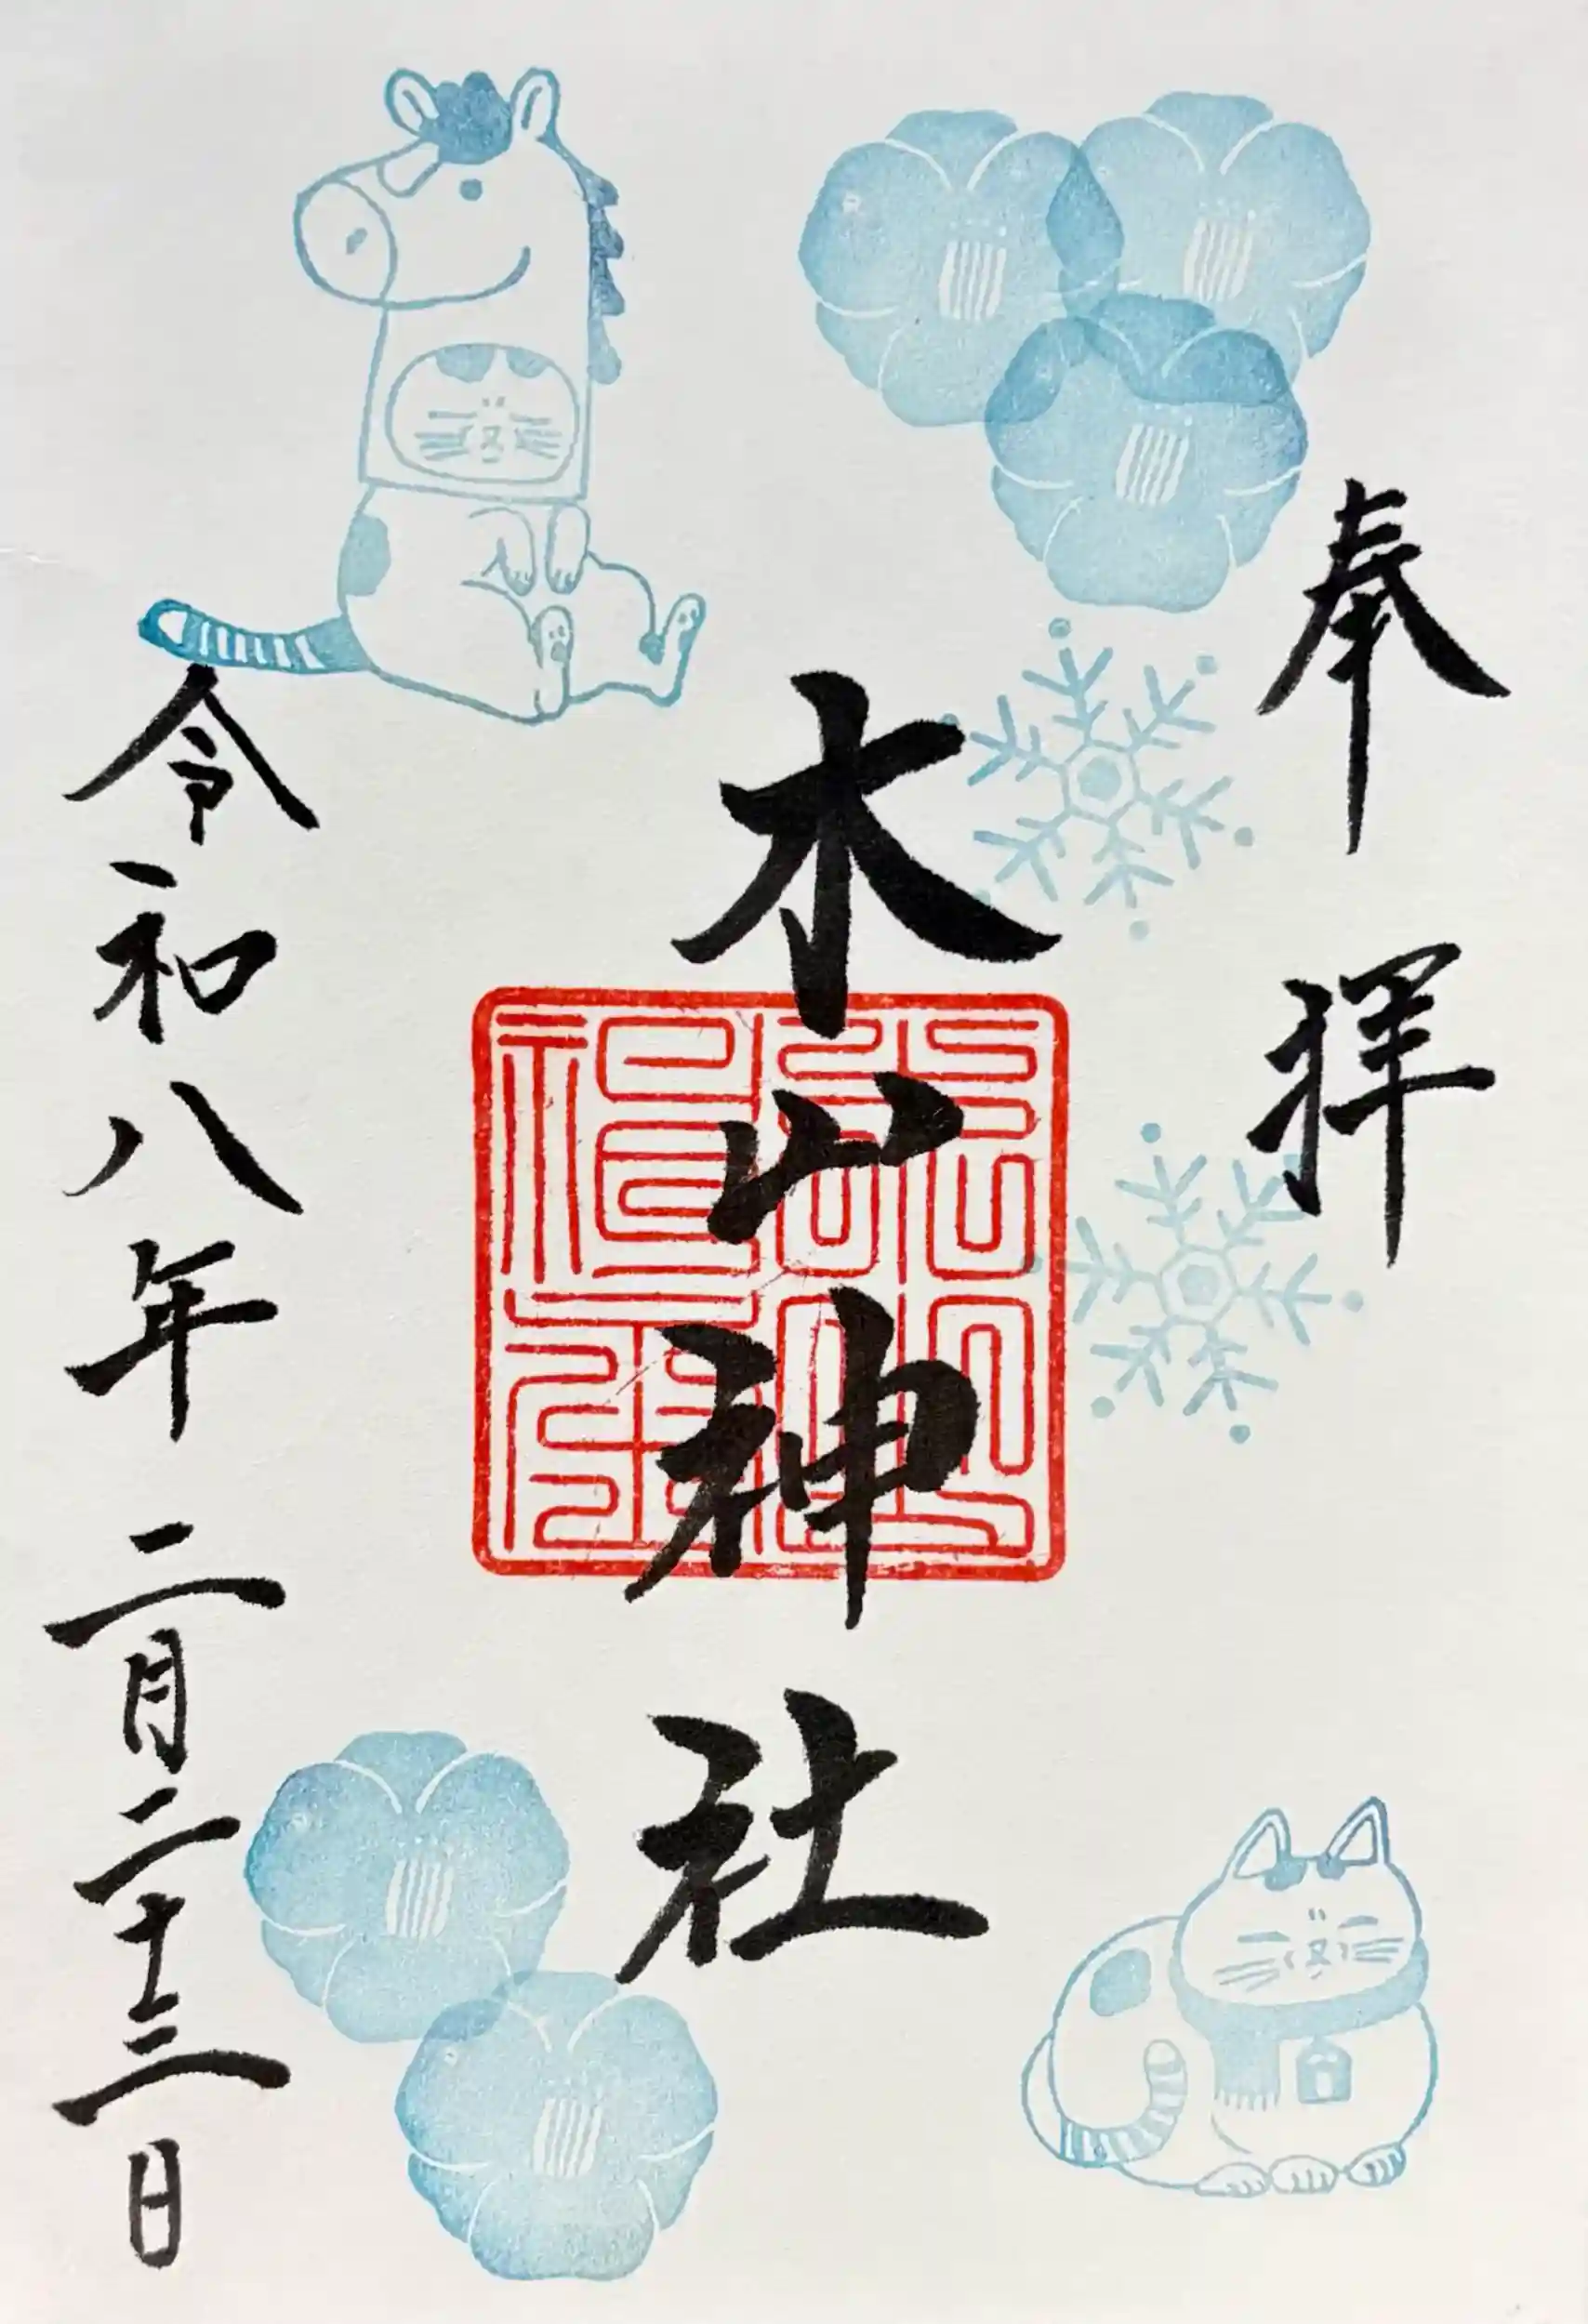 奉拝
木山神社
令和八年二月二十三日